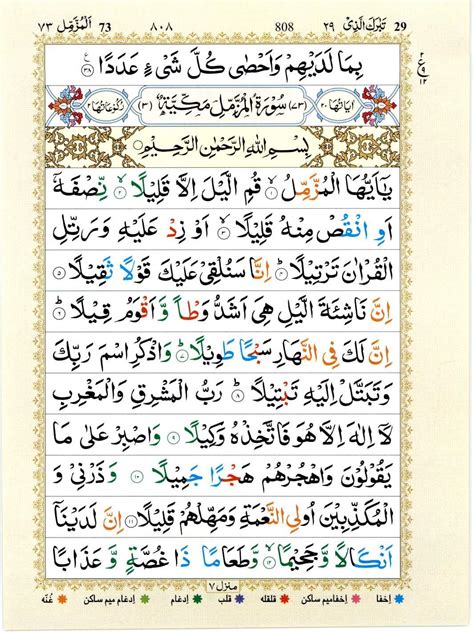 29 تَبٰرَكَ الَّذِىْ ٢٩ 808 ٨٠٨ 73 اَلْمُزَّمِّل ٧٣
بِمَا لَدَيْهِمْ وَاَحْصٰى كُلَّ شَىْءٍ عَدَدًا ۝٢٨
اٰيَاتُهَا ٢٠ (٧٣) سُوْرَةُ الْمُزَّمِّلِ مَكِّيَّةٌ (٣) رُكُوْعَاتُهَا ٢
بِسْمِ اللّٰهِ الرَّحْمٰنِ الرَّحِيْمِ
يٰۤاَيُّهَا الْمُزَّمِّلُ ۝١ قُمِ الَّيْلَ اِلَّا قَلِيْلًا ۝٢ نِّصْفَهٗۤ
اَوِ انْقُصْ مِنْهُ قَلِيْلًا ۝٣ اَوْ زِدْ عَلَيْهِ وَرَتِّلِ
الْقُرْاٰنَ تَرْتِيْلًا ۝٤ اِنَّا سَنُلْقِىْ عَلَيْكَ قَوْلًا ثَقِيْلًا ۝٥
اِنَّ نَاشِئَةَ الَّيْلِ هِىَ اَشَدُّ وَطْاً وَّاَقْوَمُ قِيْلًا ۝٦
اِنَّ لَكَ فِى النَّهَارِ سَبْحًا طَوِيْلًا ۝٧ وَاذْكُرِ اسْمَ رَبِّكَ
وَتَبَتَّلْ اِلَيْهِ تَبْتِيْلًا ۝٨ رَبُّ الْمَشْرِقِ وَالْمَغْرِبِ
لَاۤ اِلٰهَ اِلَّا هُوَ فَاتَّخِذْهُ وَكِيْلًا ۝٩ وَاصْبِرْ عَلٰى مَا
يَقُوْلُوْنَ وَاهْجُرْهُمْ هَجْرًا جَمِيْلًا ۝١٠ وَذَرْنِىْ وَ
الْمُكَذِّبِيْنَ اُولِى النَّعْمَةِ وَمَهِّلْهُمْ قَلِيْلًا ۝١١ اِنَّ لَدَيْنَاۤ
اَنْكَالًا وَّجَحِيْمًا ۝١٢ وَّطَعَامًا ذَا غُصَّةٍ وَّعَذَابًا
منزل ٧
اخفا اخفامیم ساکن قلقله قلب ادغام ادغام میم ساکن غُنّه